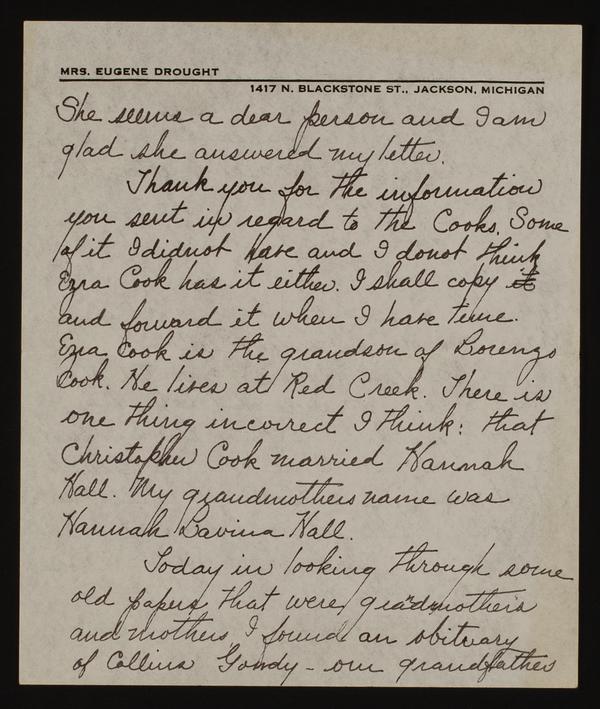 MRS. EUGENE DROUGHT
1417 N. BLACKSTONE ST., JACKSON, MICHIGAN
She seems a dear person and I am
glad she answered my letter.
Thank you for the information
you sent in regard to the Cooks. Some
of it I did not have and I do not think
Ezra Cook has it either. I shall copy it
and forward it when I have time.
Ezra Cook is the grandson of Lorenzo
Cook. He lives at Red Creek. There is
one thing incorrect I think: that
Christopher Cook married Hannah
Hall. My grandmothers name was
Hannah Lavina Hall.
Today in looking through some
old papers that were gradmother's
and mothers I found an obituary
of Collins Gowdy - our grandfather